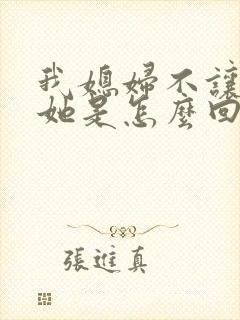 我媳婦不讓
她是怎麼回
張進真